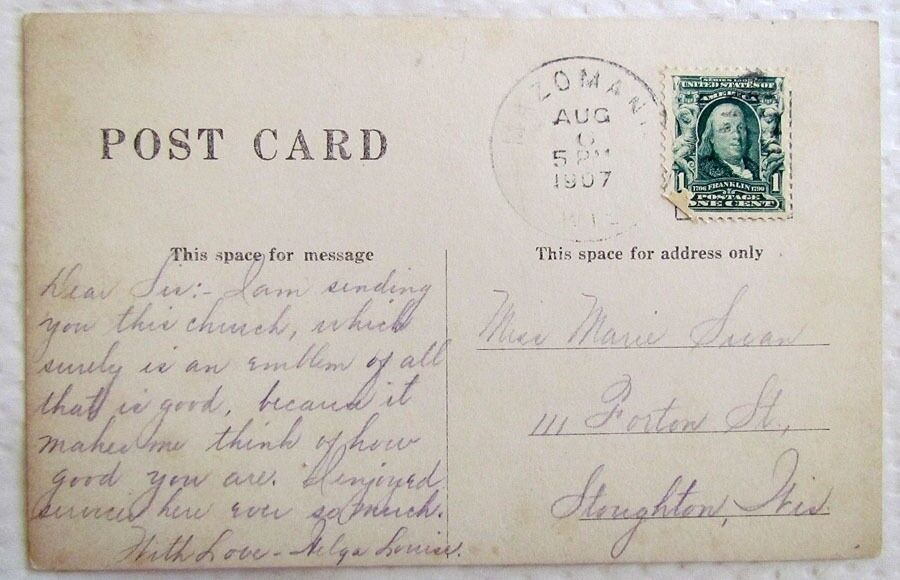 POST CARD
MAZOMANI
AUG
6
5 PM
1907
WIS
SERIES 1902
UNITED STATES OF
AMERICA
1 1706 FRANKLIN 1790 1
POSTAGE
ONE CENT
This space for message
Dear Sis:- I am sending
you this church, which
surely is an emblem of all
that is good, because it
makes me think of how
good you are. I enjoyed
services here ever so much.
With Love - Helga Louise.
This space for address only
Miss Marie Swan
111 Forton St.,
Stoughton, Wis.